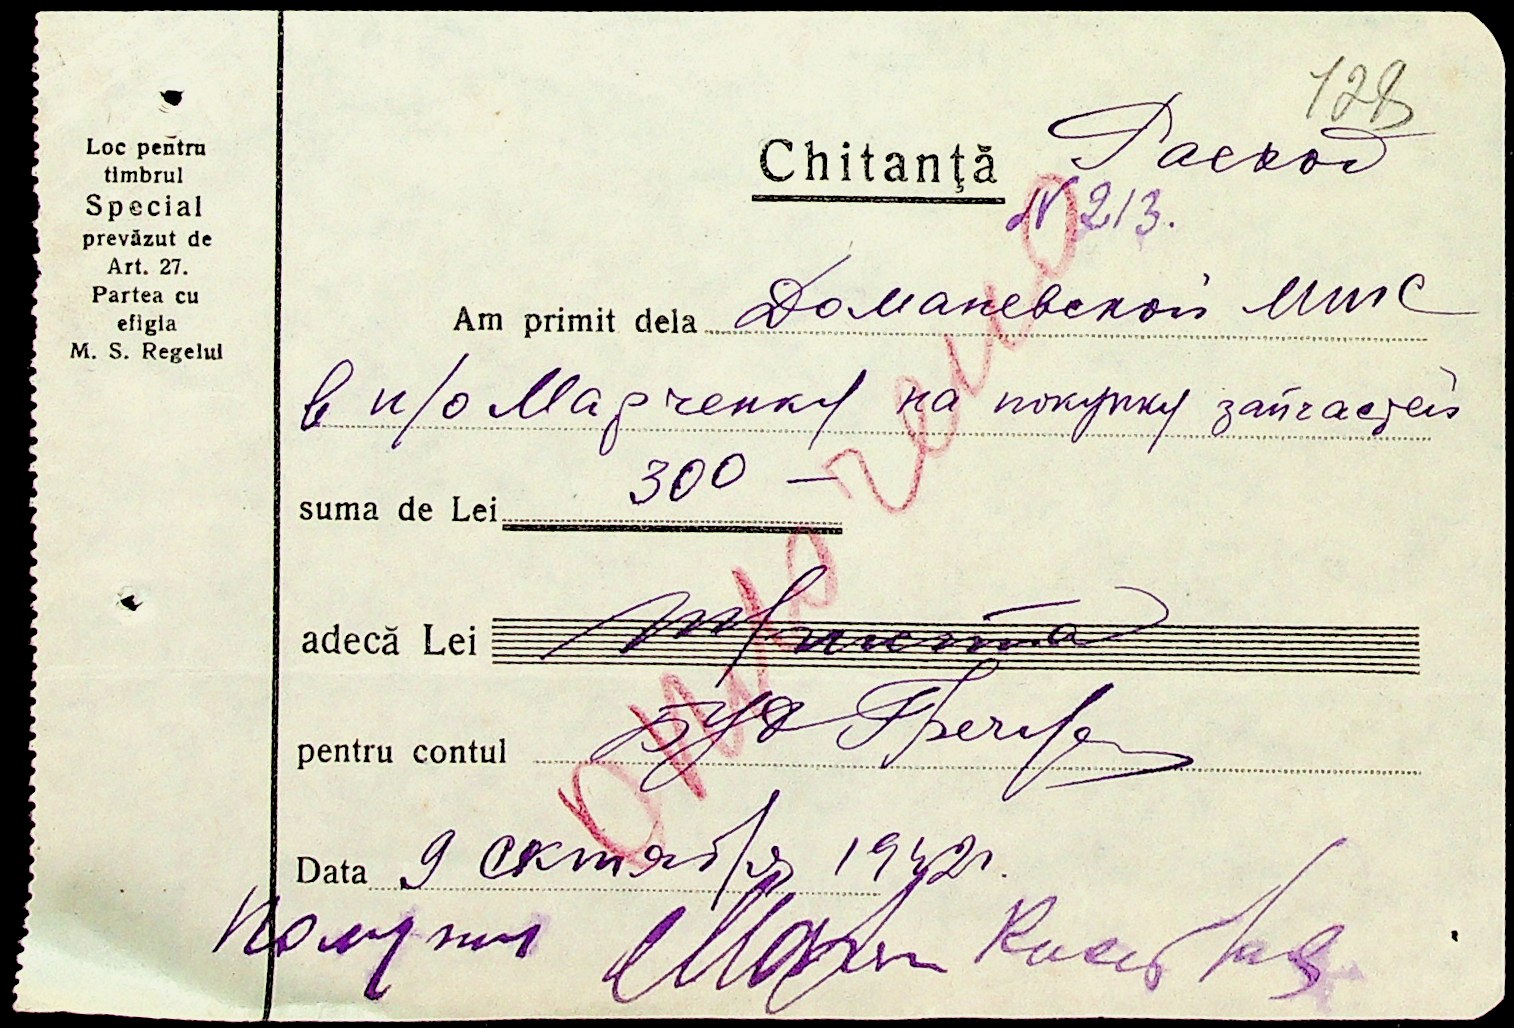 128
Loc pentru
timbrul
Special
prevăzut de
Art. 27.
Partea cu
efigia
M. S. Regelui
Chitanţă Расход
N 213.
Am primit dela Доманевской МТС
в п/о Марченку на покупку запчастей
suma de Lei 300 —
adecă Lei Триста
pentru contul Бух
Data 9 октября 1942 г.
Получил
оплачено